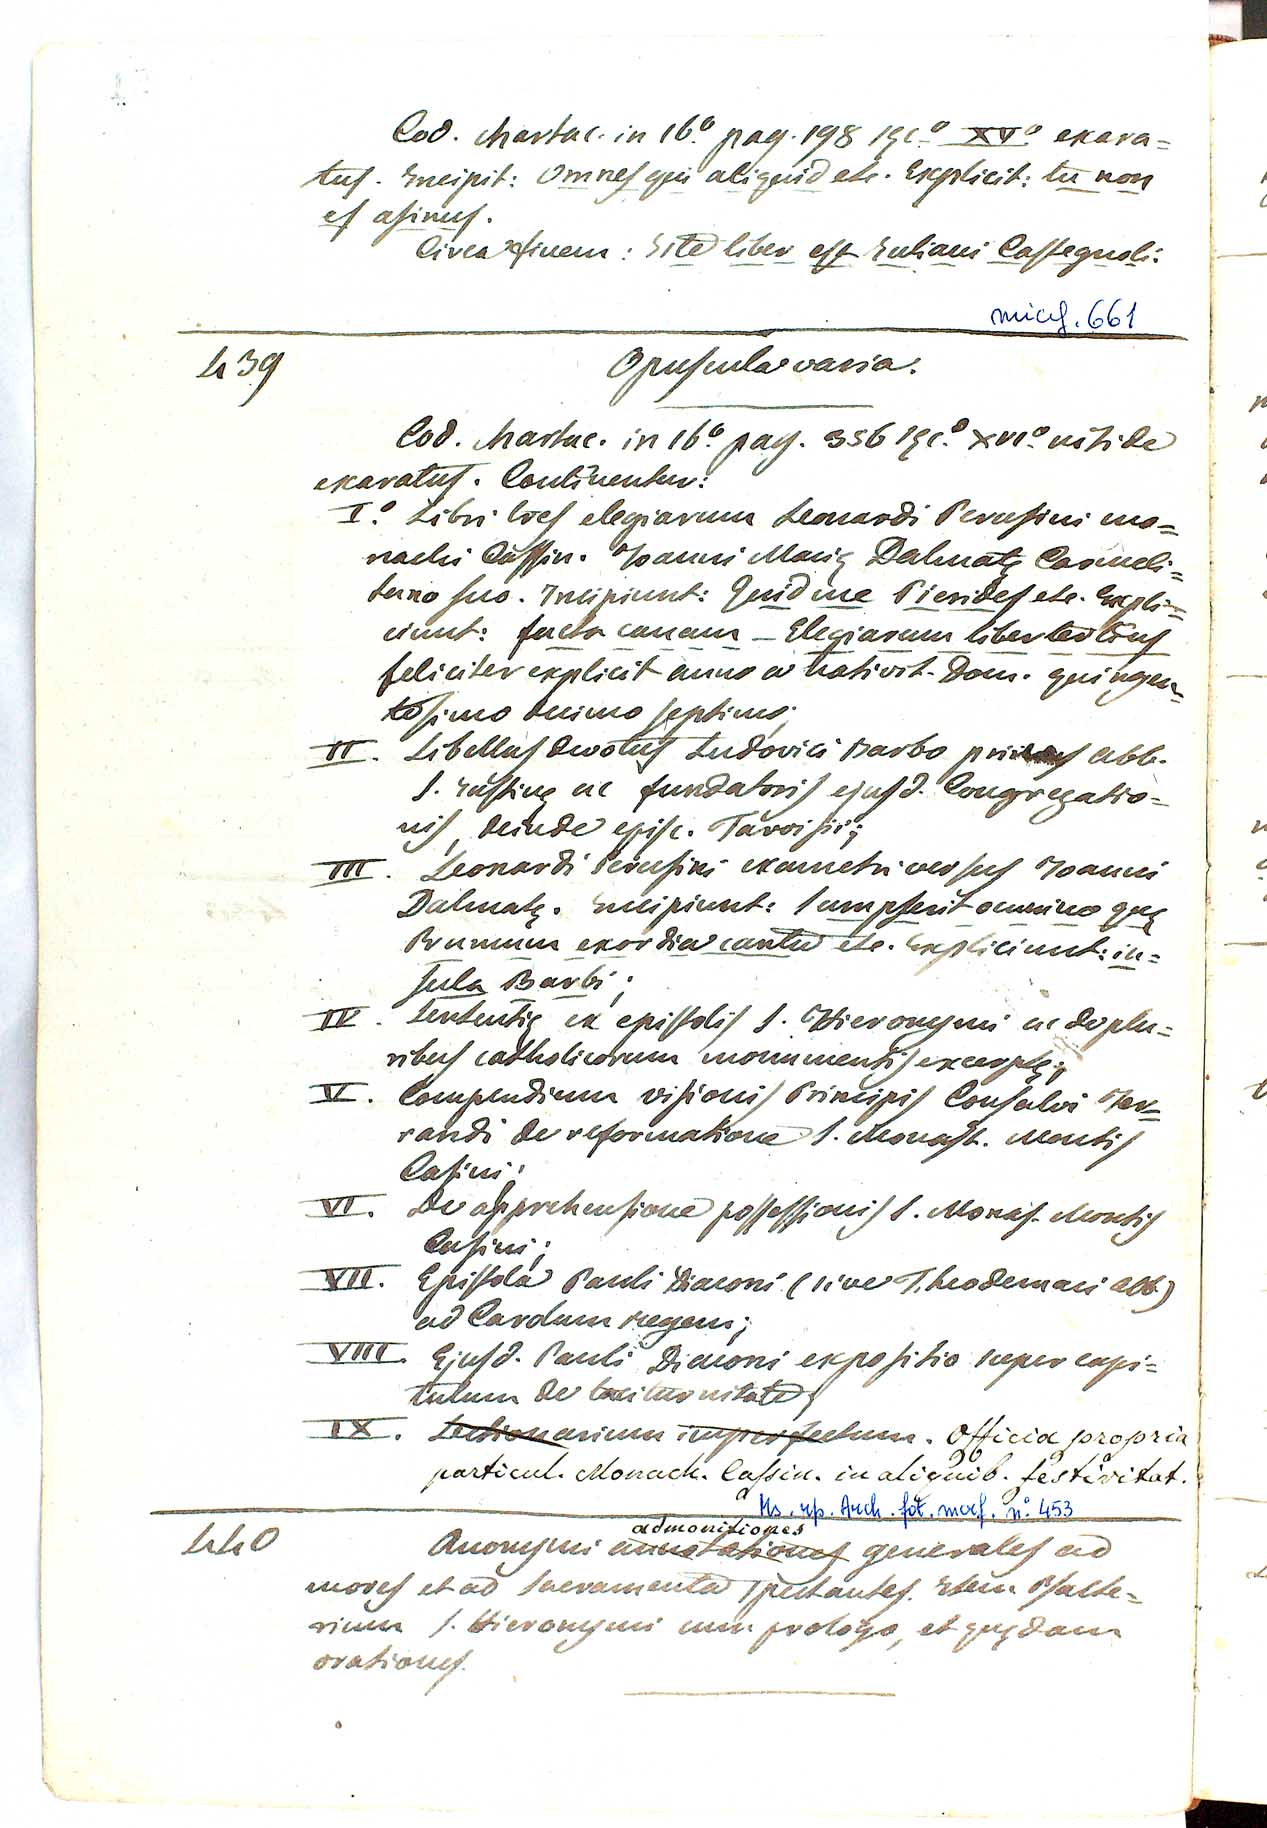 Cod. chartac. in 16º pag. 198 sęc.º XVº exara=
tus. Incipit: Omnes qui aliquid etc. Explicit: tu non
es asinus.
Circa finem: Iste liber est Iuliani Castegnoli.
micf. 661
439
Opuscula varia.
Cod. chartac. in 16º pag. 356 sęc.º XVIº nitide
exaratus. Continentur:
I.º Libri tres elegiarum Leonardi Perusini mo=
nachi Cassin. Joanni Marię Dalmatę Carmeli=
tano suo. Incipiunt: Quid me Pierides etc. Expli=
ciunt: facta canam – Elegiarum liber tertius
feliciter explicit anno a nativit. Dom. quingen=
tesimo decimo septimo;
II. Libellus devotus Ludovici Barbo primi abb.
S. Justinę ac fundatoris ejusd. Congregatio=
nis, deinde episc. Tarvisii;
III. Leonardi Perusini exametri versus Joanni
Dalmatę. Incipiunt: Sumpserit omnino quę
Brumum exordia cantu etc. Expliciunt: in=
sula Barbi;
IV. Sententię ex epistolis S. Hieronymi ac de plu=
ribus catholicorum monumentis excerptę;
V. Compendium visionis Principis Consalvi Fer=
randi de reformatione S. Monast. Montis
Casini;
VI. De apprehensione possessionis S. Monas. Montis
Casini;
VII. Epistola Pauli Diaconi (sive Theodemari Abb.)
ad Carolum regem;
VIII. Ejusd. Pauli Diaconi expositio super capi=
tulum de taciturnitate;
IX. Lectionarium imperfectum. Officia propria
particul. Monach. Cassin. in aliquib. festivitat.
Ms. rip. Arch. fot. micf. nº 453
440
admonitiones
Anonymi annotationes generales ad
mores et ad sacramenta spectantes. Item Psalte=
rium S. Hieronymi cum prologo, et quędam
orationes.